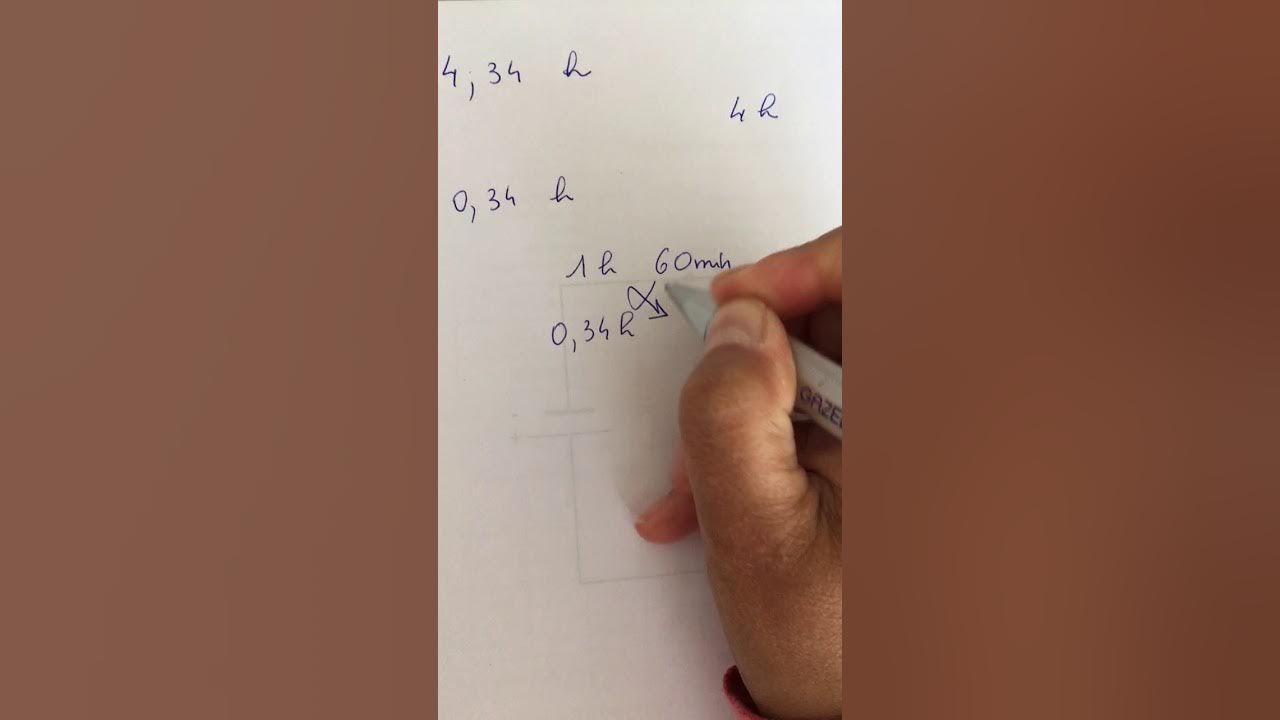 4,34 h
4 h
0,34 h
1 h 60 min
0,34 h